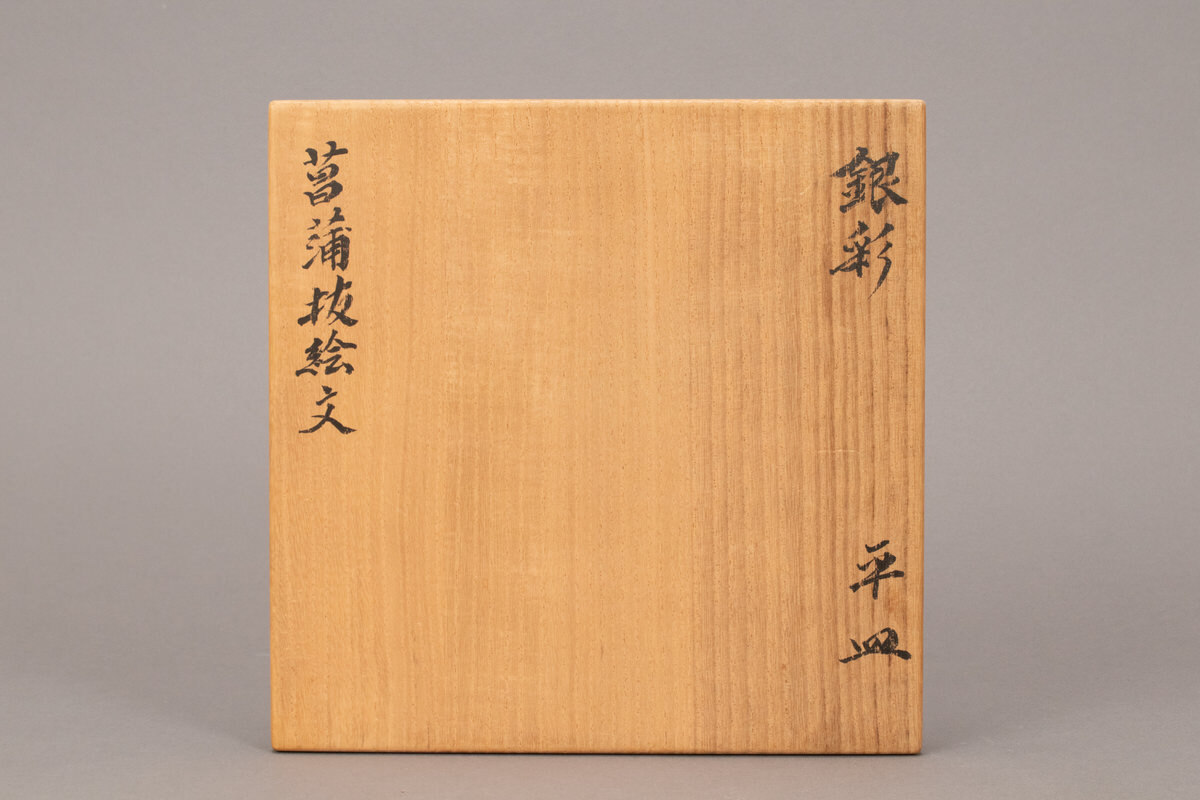 銀彩　平皿
菖蒲抜絵文